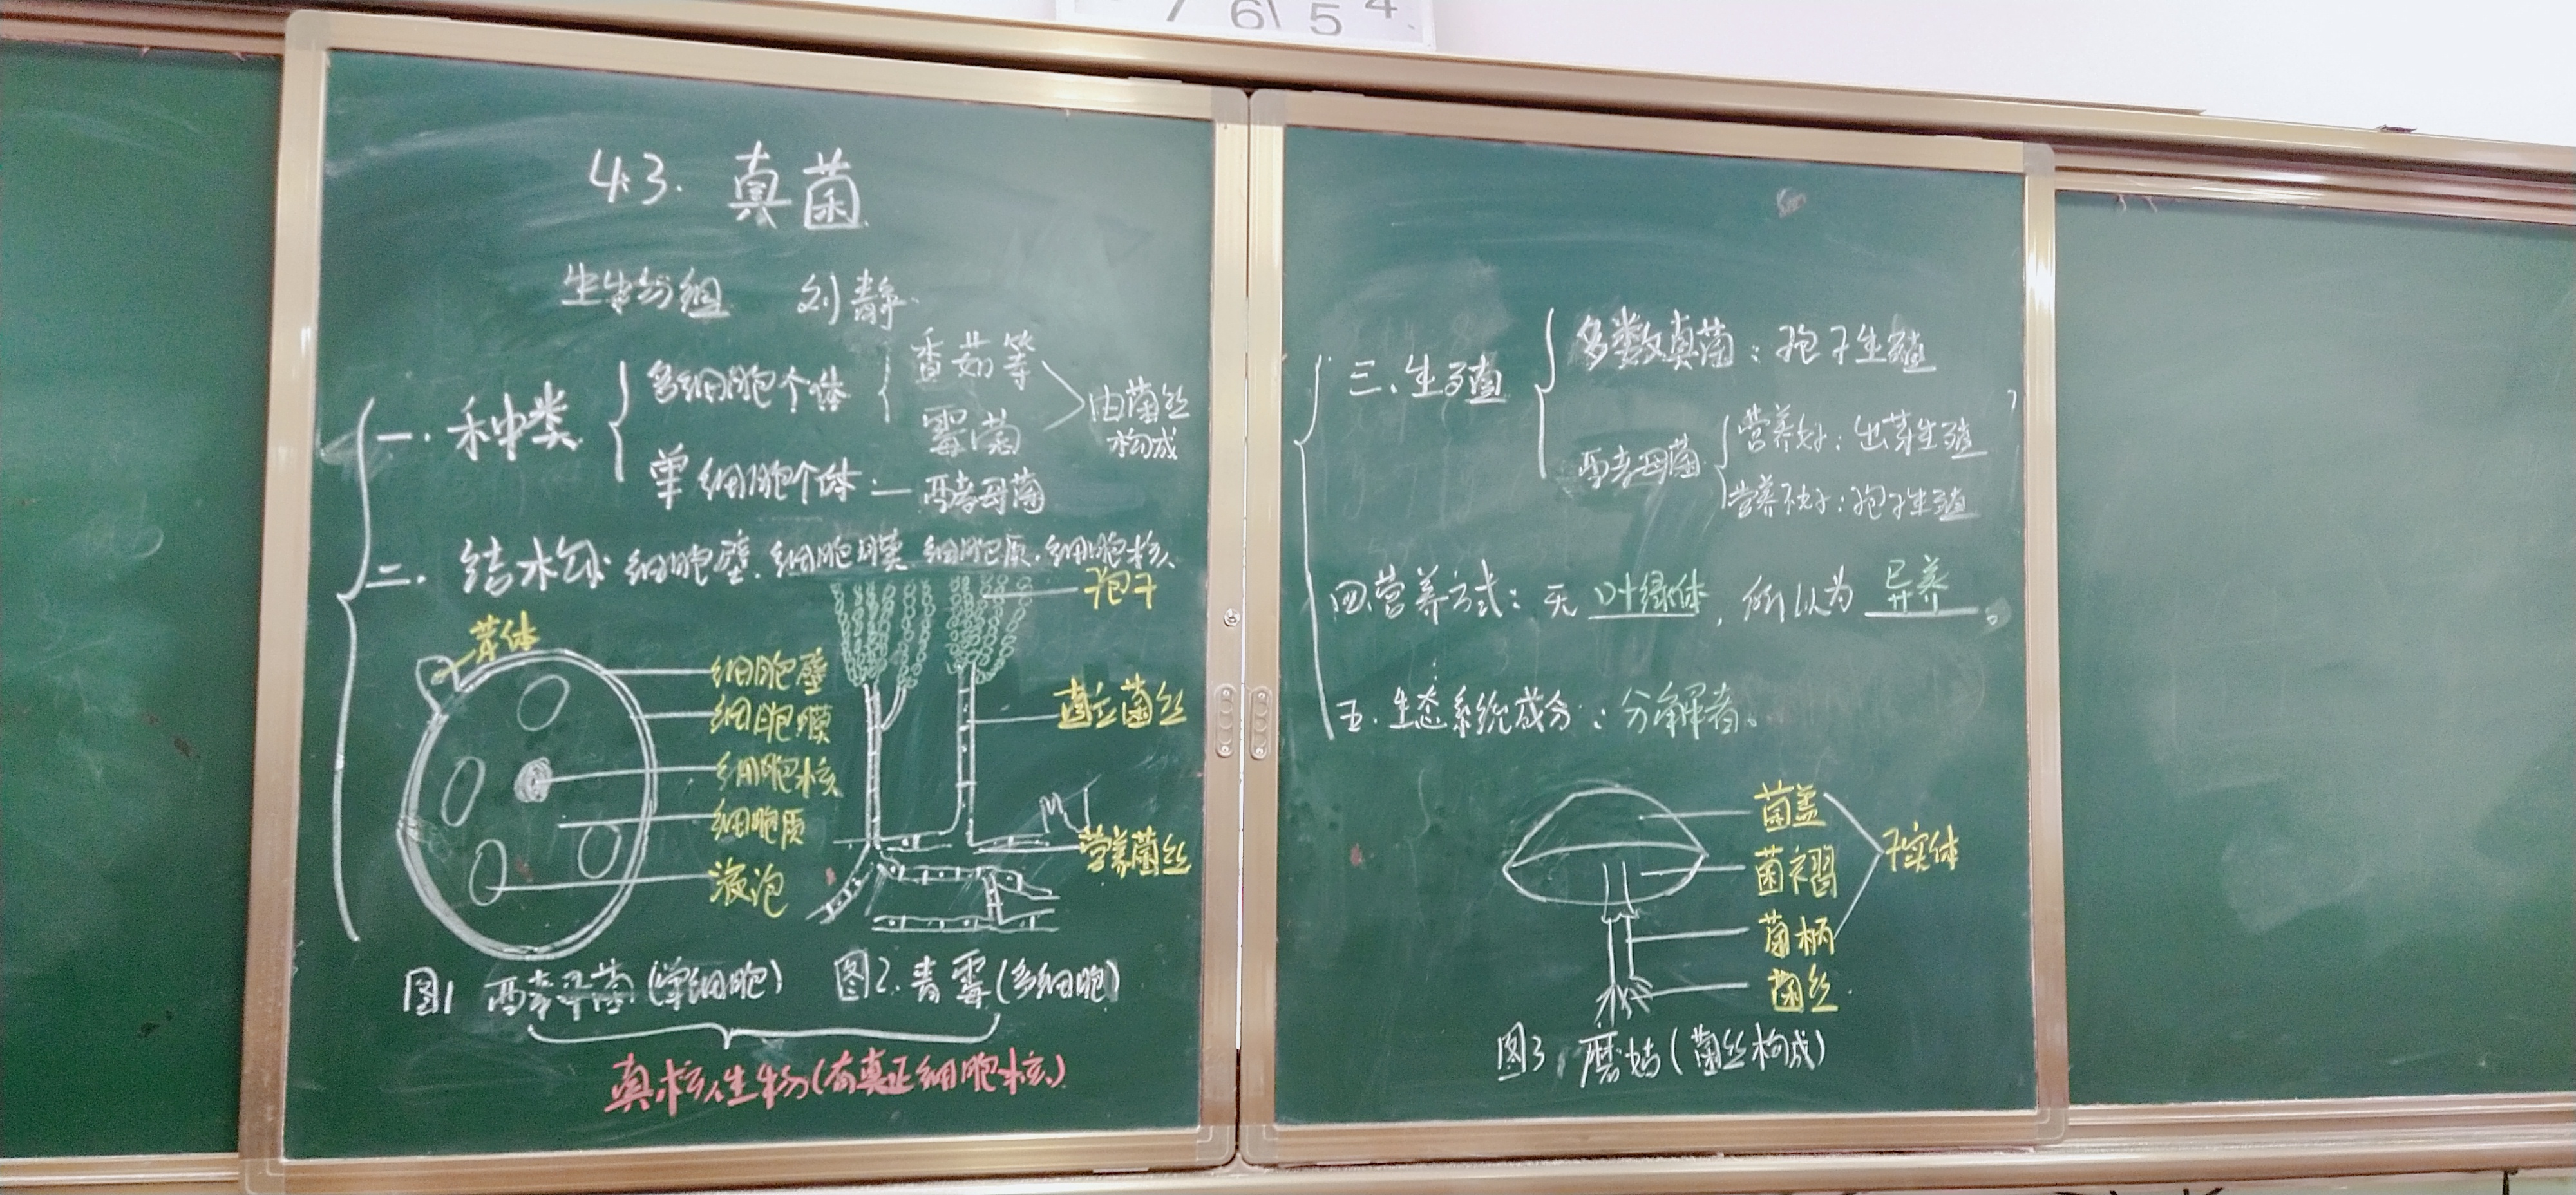 7 6 5 4
4.3. 真菌
生生物组 刘静.
一. 种类
多细胞个体
香菇等
霉菌
由菌丝
构成
单细胞个体 — 酵母菌
二. 结构: 细胞壁. 细胞膜 细胞质. 细胞核
芽体
细胞壁
细胞膜
细胞核
细胞质
液泡
孢子
直立菌丝
营养菌丝
图1 酵母菌(单细胞)
图2. 青霉(多细胞)
真核生物(有真正细胞核)
三. 生殖
多数真菌: 孢子生殖
酵母菌
营养好: 出芽生殖
营养不好: 孢子生殖
四.营养方式: 无 叶绿体, 所以为 异养。
五. 生态系统成分: 分解者。
菌盖
菌褶
菌柄
菌丝
子实体
图3. 磨菇(菌丝构成)